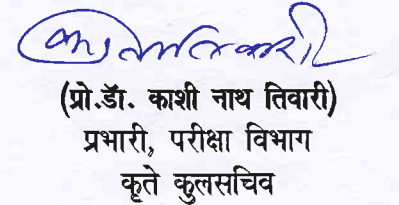 (प्रो.डॅा. काशी नाथ तिवारी)
प्रभारी, परीक्षा विभाग
कृते कुलसचिव